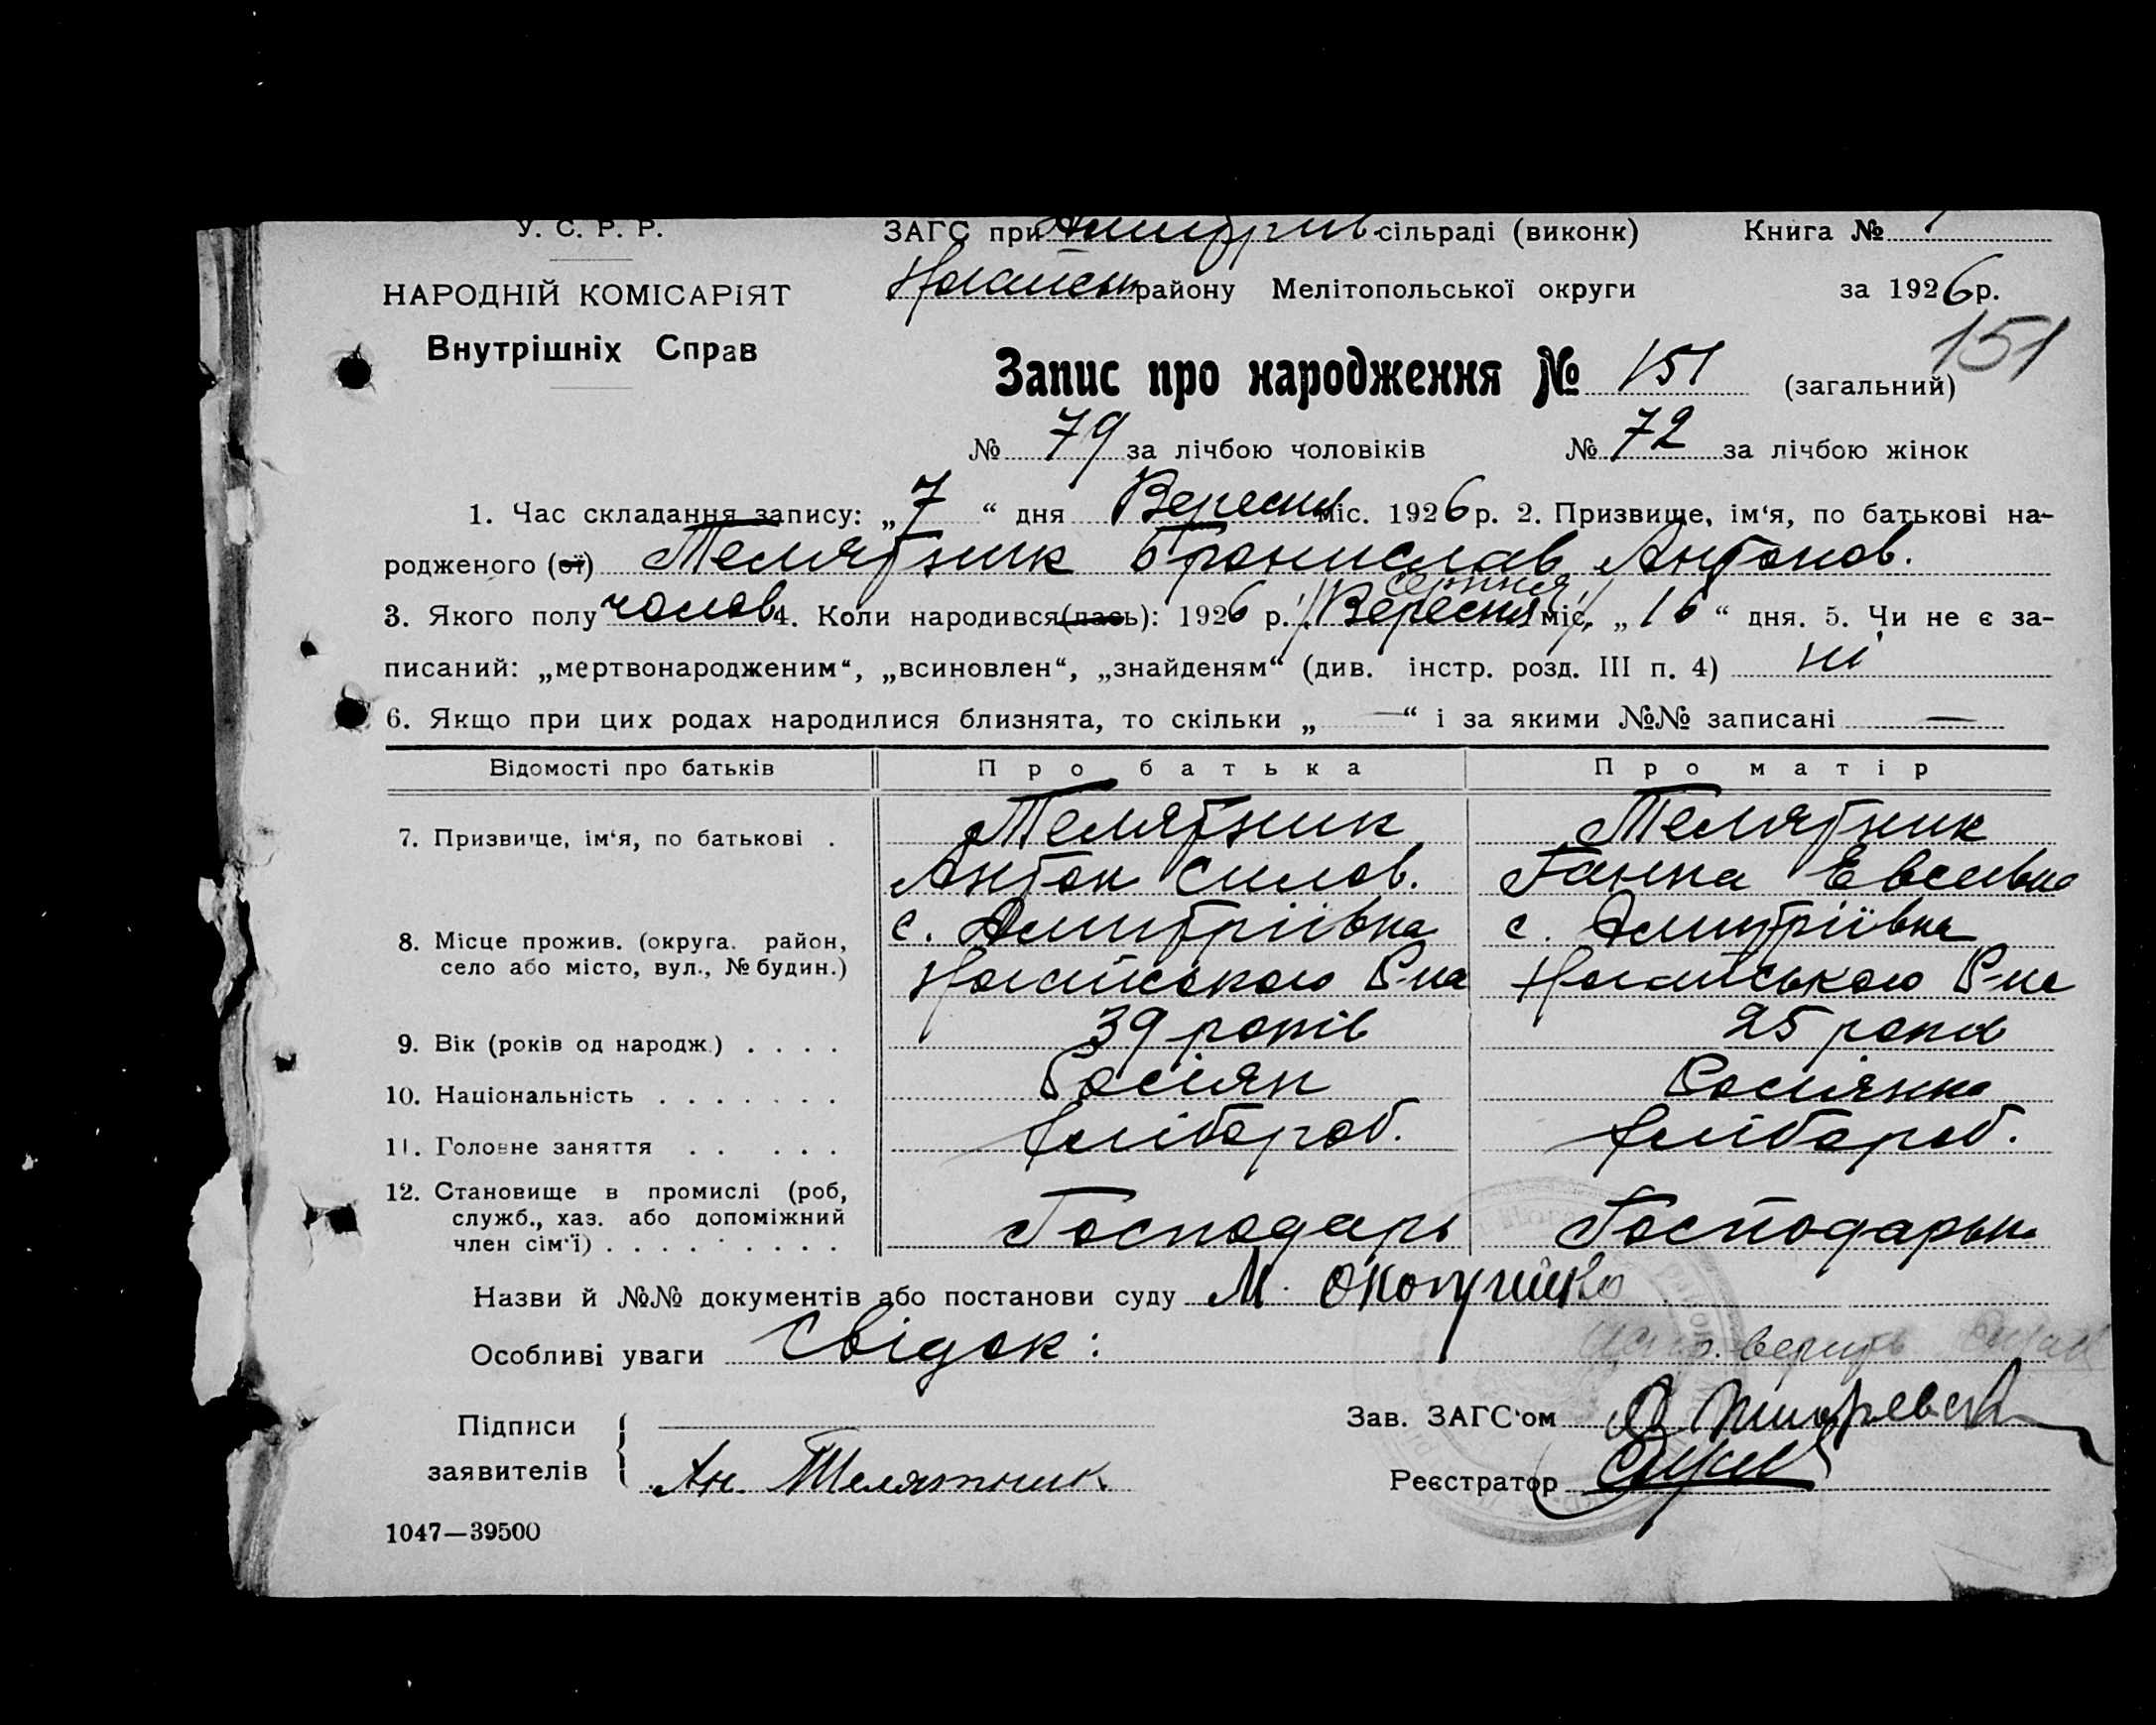 У. С. Р. Р.
ЗАГС при Дмитрів. сільраді (виконк)
Книга №
НАРОДНІЙ КОМІСАРІЯТ
Внутрішніх Справ
Ногайськ району Мелітопольської округи
за 1926 р.
151
Запис про народження № 151 (загальний)
№ 79 за лічбою чоловіків № 72 за лічбою жінок
1. Час складання запису: „7“ дня Вересня міс. 1926 р. 2. Призвище, ім‘я, по батькові на-
родженого (ої) Телятник Бронислав Антонов.
серпня
3. Якого полу чолов 4. Коли народився (лась): 1926 р. Вересня міс. „16“ дня. 5. Чи не є за-
писаний: „мертвонародженим“, „всиновлен“, „знайденям“ (див. інстр. розд. III п. 4) ні
6. Якщо при цих родах народилися близнята, то скільки „—“ і за якими №№ записані —
Відомості про батьків Про батька Про матір
7. Призвище, ім‘я, по батькові . Телятник Телятник
Антон Силов. Ганна Евсеивна
8. Місце прожив. (округа. район, с. Дмитріївка с. Дмитріївка
село або місто, вул., № будин.) Ногайського Р-на Ногайського Р-на
9. Вік (років од народж.) . . . . 39 років 25 років
10. Національність . . . . . . . Росіян Росіянка
11. Головне заняття . . . . . Хлібороб. Хлібороб.
12. Становище в промислі (роб,
служб., хаз. або допоміжний
член сім‘ї) . . . . . . . . . Господарь Господарька
Назви й №№ документів або постанови суду М.
Особливі уваги Свідок:
Підписи
заявителів Ан. Телятник
Зав. ЗАГС‘ом
Реєстратор
1047—39500